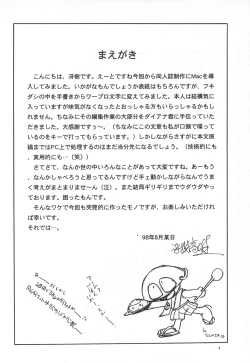 まえがき
こんにちは、冴樹です。えーとですね今回から同人誌制作にMacを導
入してみました。いかがなもんでしょうか表紙はもちろんですが、フキ
ダシの中を手書きからワープロ文字に変えてみました。本人は結構気に
入っていますが味気がなくなったとおっしゃる方もいらっしゃるかもし
れません。ちなみにその編集作業の大部分をダイアナ君に手伝っていた
だきました。大感謝ですぅ~。(ちなみにこの文章も私が口頭で喋って
いるのをキーで打ってもらっています。)しかしながらさすがに本文原
稿まではPC上で処理するのはまだ当分先になるでしょう。(技術的にも
、実用的にも…(笑))
さてさて、なんか世の中いろんなことがあって大変ですね。あーもう
、なんかしゃべろうと思ってるんですけどキュ動かしながらなんでうま
く考えがまとまりませ~ん(泣)。また結局ギリギリまでウダウダやっ
ております。困ったもんです。
そんなワケで今回も突発的に作ったモノですが、お楽しみいただけれ
ば幸いです。
それでは…。
'98年8月某日